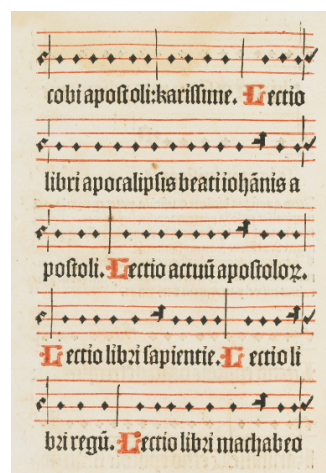 cobi apostoli: karissime. Lectio
libri apocalipsis beati iohānis a
postoli. Lectio actuū apostoloꝝ.
Lectio libri sapientie. Lectio li
bri regū. Lectio libri machabeo